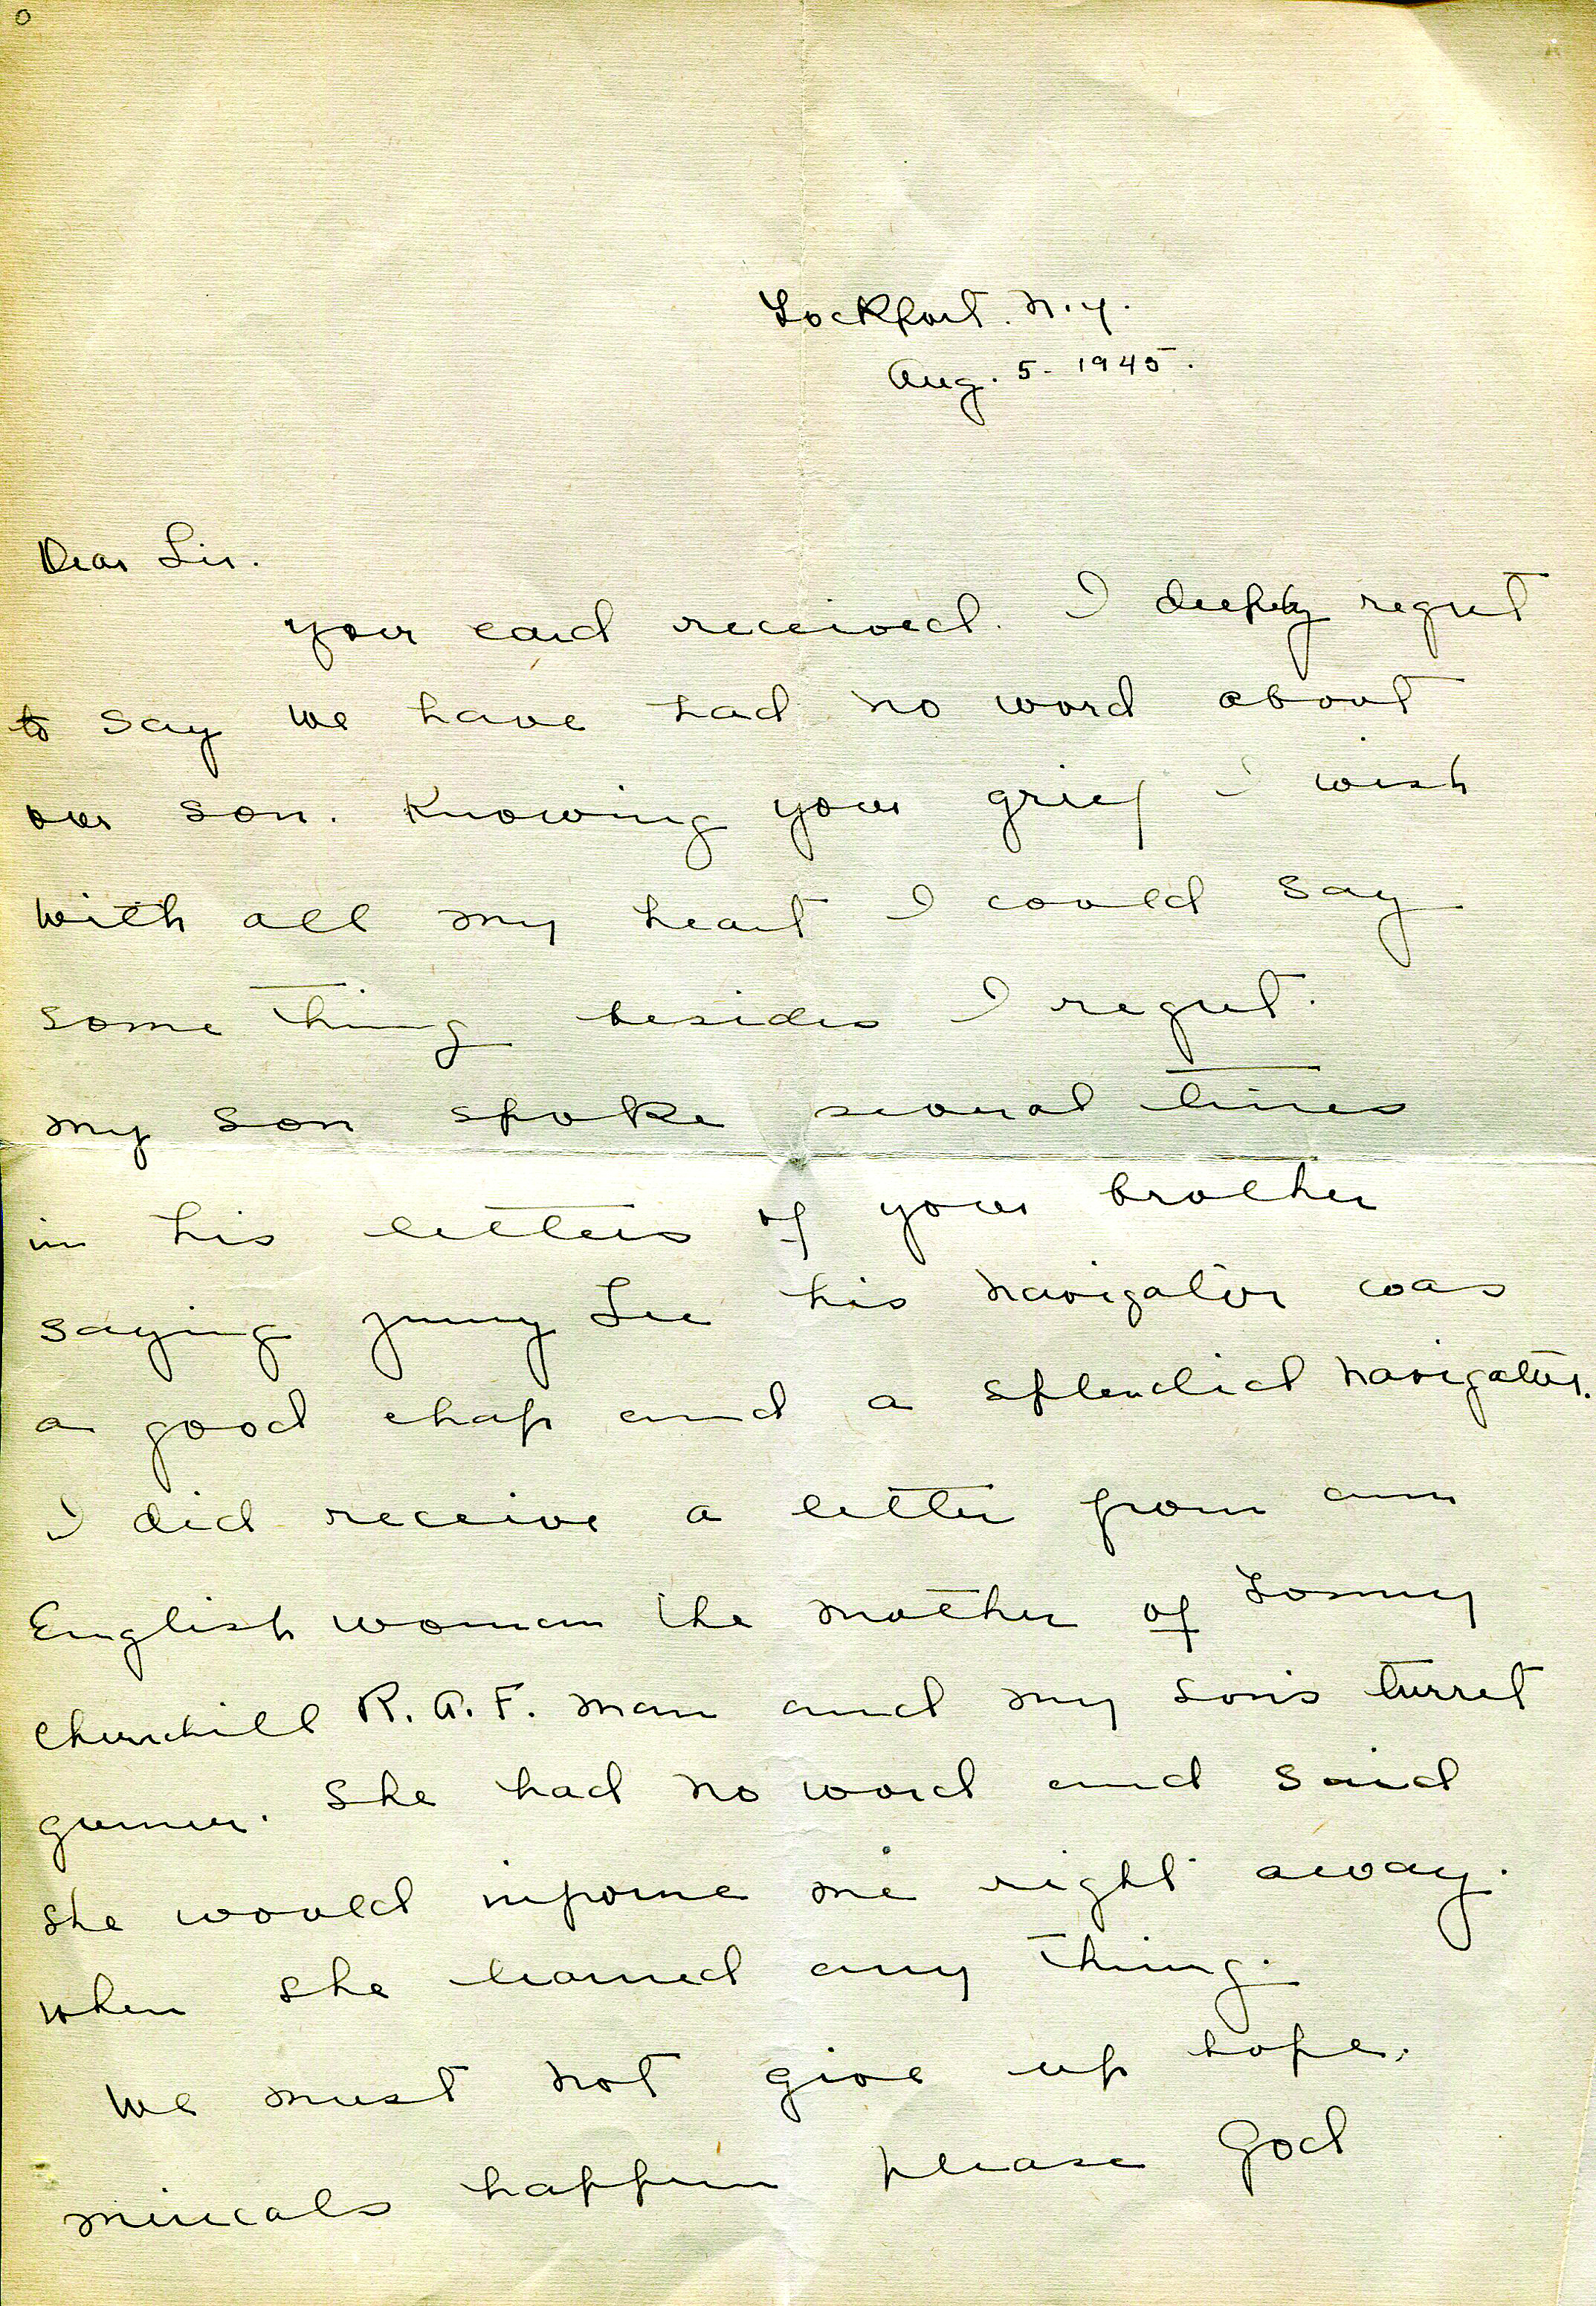 Lockport. N.Y.
Aug. 5- 1945.
Dear Sir.
your card received. I deeply regret
to say we have had no word about
our son. Knowing your grief I wish
with all my heart I could say
some thing besides I regret.
my son spoke several times
in his letters of your brother
saying Jimmy Lee his navigator was
a good chap and a splendid navigator.
I did receive a letter from an
English woman the mother of
Churchill R.A.F. man and my son's turret
gunner. She had no word and said
she would informe me right away.
when she learned any thing.
We must not give up hope.
miricals happen please God